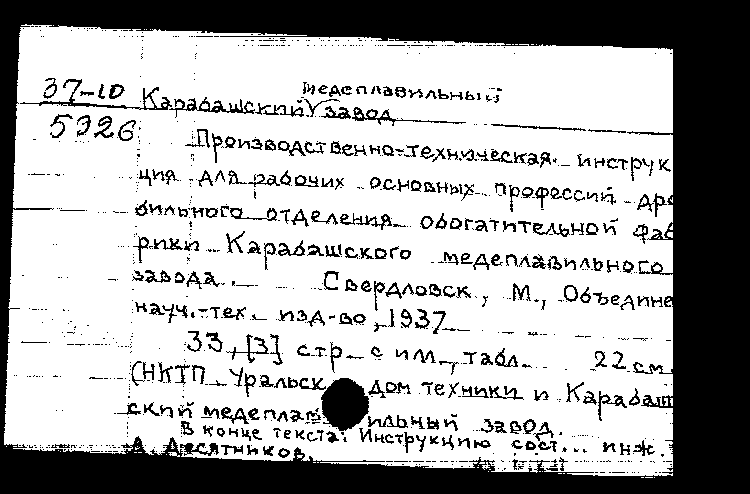 медеплавильный
37-10 Карабашский завод
5926
Производственно-техническая инструк
ция для рабочих основных профессий дро
бильного отделения обогатительной фаб
рики Карабашского медеплавильного
завода. Свердловск, М., Объедине
науч.-тех. изд-во, 1937
33, [3] стр. с илл., табл. 22 см.
(НКТП Уральск дом техники и Карабаш
ский медеплав ильный завод.
В конце текста: Инструкцию сост... инж.
А. Десятников.